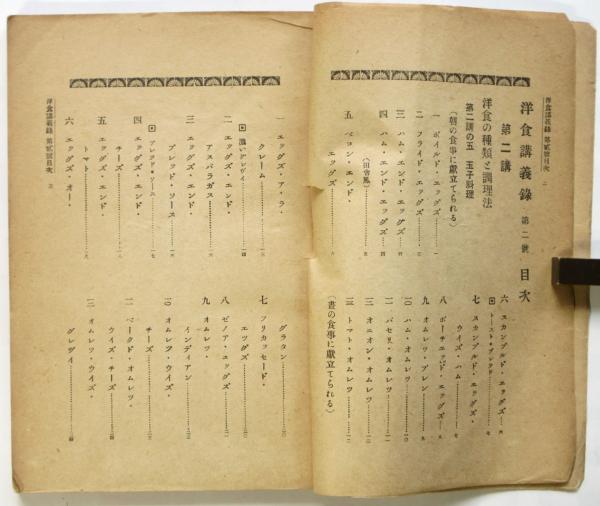 洋食講義錄 第貳號目次 二
洋食講義錄 第二號 目次
第二講
洋食の種類と調理法
第二講の五 玉子料理
(朝の食事に獻立てられる)
一 ボイルド・エッグズ……一
二 フライド・エッグズ……二
三 ハム・エンド・エッグズ……三
四 ハム・エンド・エッグズ……四
(田舎風)
五 ベコン・エンド・
エッグズ……六
六 スカンブルド・エッグズ……六
トースト・ブレッド……七
七 スカンブルド・エッグズ・
ウイズ・ハム……七
八 ポーチエッド・エッグズ……八
九 オムレツ・プレン……九
一〇 ハム・オムレツ……一〇
一一 パセリ・オムレツ……一一
一二 オニオン・オムレツ……一二
一三 トマト・オムレツ……一二
(晝の食事に獻立てられる)
エッグズ・ア・ラ・
クレーム……一三
濃いグレヴイ……一四
二 エッグズ・エンド・
アスパラガス……一五
三 エッグズ・エンド・
ブレッド・ソース……一六
ブレッド・ソース……一七
四 エッグズ・エンド・
チーズ……一八
五 エッグズ・エンド・
トマト……一九
六 エッグズ・オー・
グラタン……二〇
七 フリカッセード・
エッグズ……二一
八 ゼノア・エッグズ……二一
九 オムレツ・
インディアン……二二
一〇 オムレツ・ウイズ・
チーズ……二三
一一 ベークド・オムレツ・
ウイズ・チーズ……二四
一二 オムレツ・ウイズ・
グレヴイ……二四
洋食講義錄 第貳號目次 三